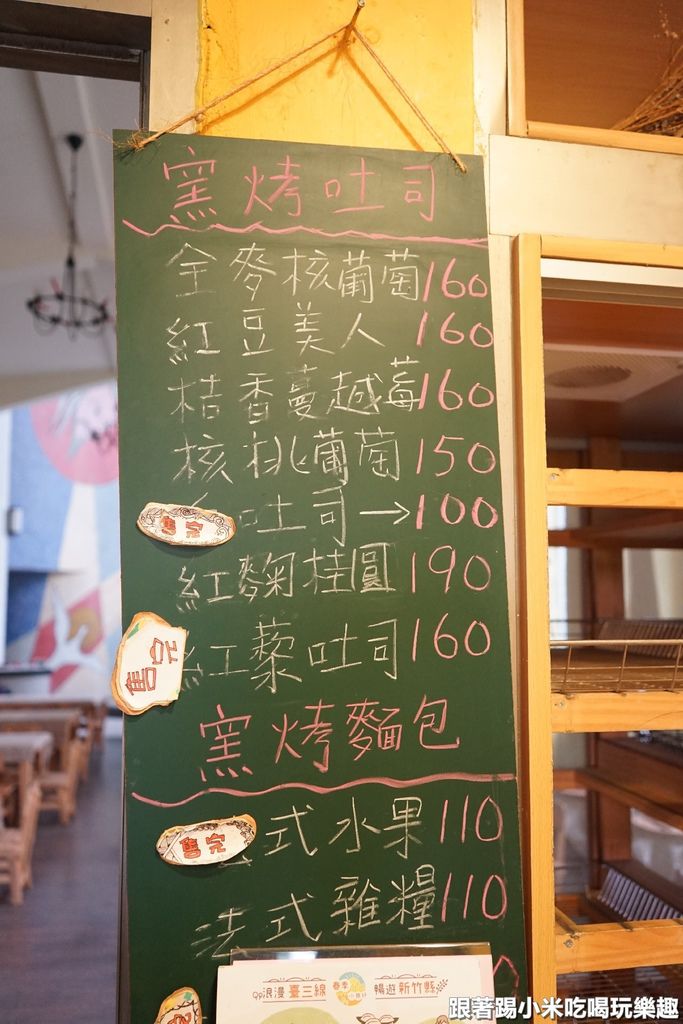 窯烤吐司
全麥核葡萄160
紅豆美人160
桔香蔓越莓160
核桃葡萄150
售完 吐司→100
紅麴桂圓190
售完 紅藜吐司160
窯烤麵包
售完 式水果110
法式雜糧110
0
qp浪漫臺三線 春季 暢遊新竹縣
跟著踢小米吃喝玩樂趣